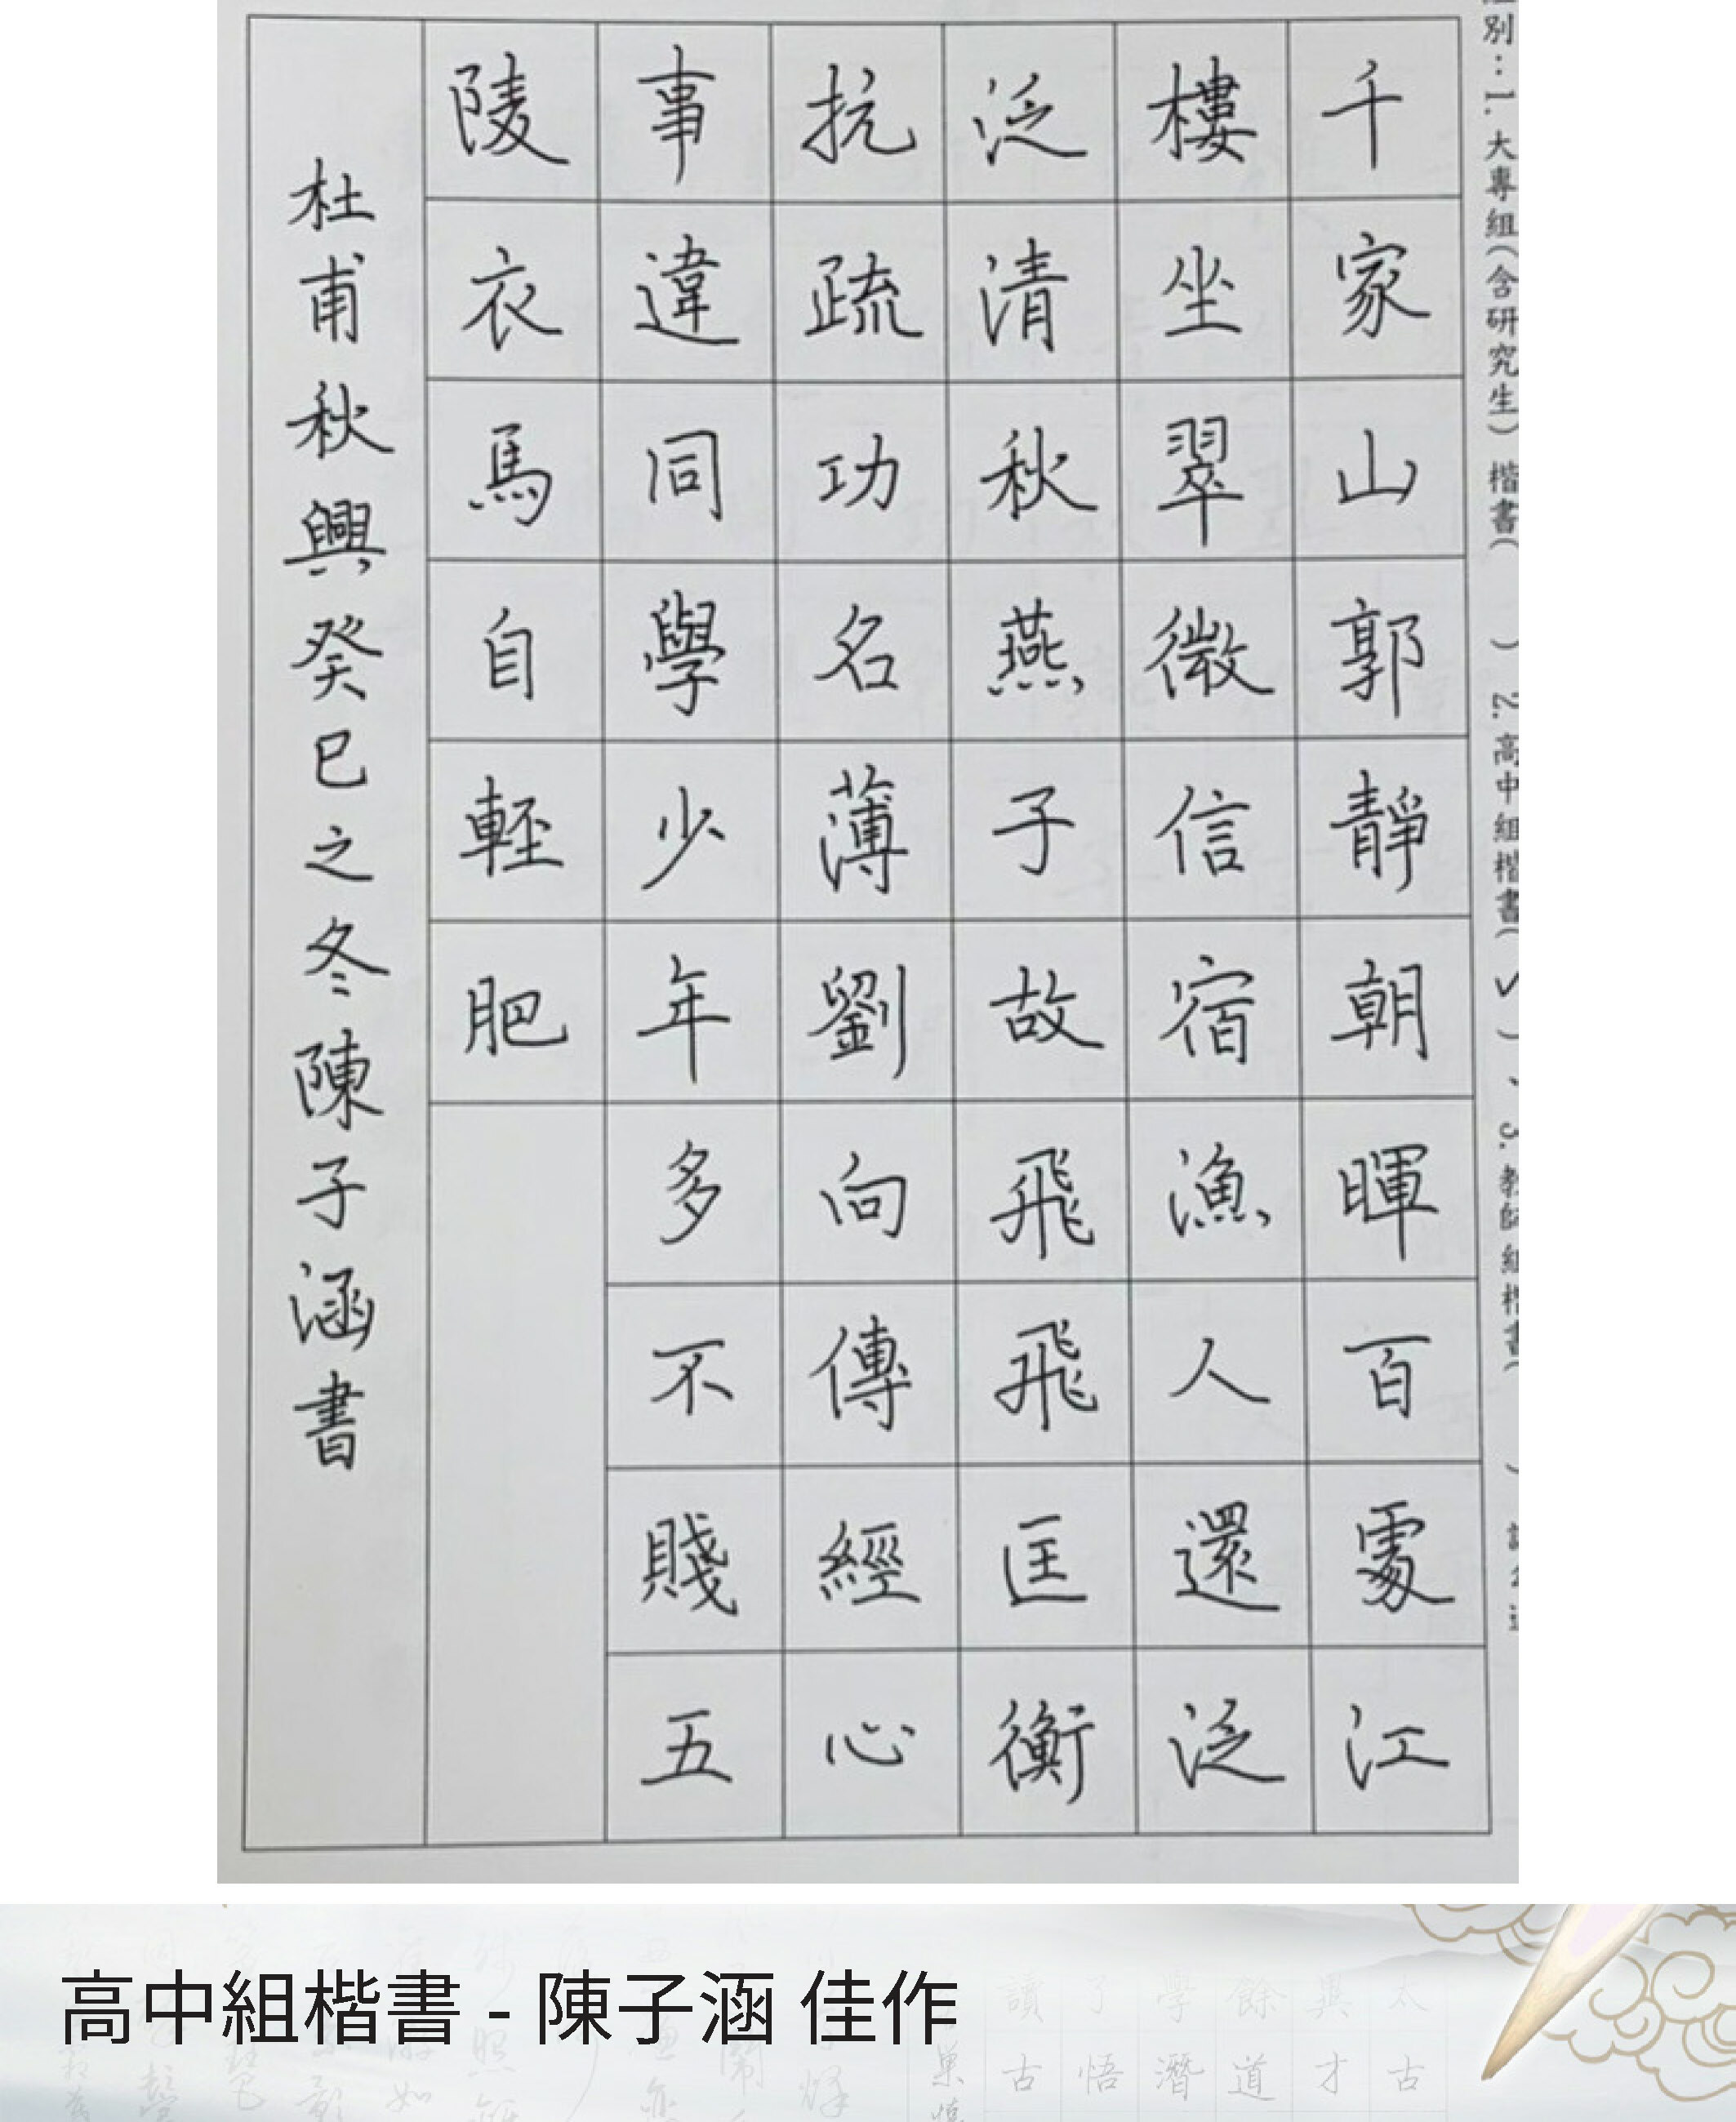 別：1.大專組(含研究生)楷書(　)2.高中組楷書(✓)、3.教師組楷書(　)
千家山郭靜朝暉百處江
樓坐翠微信宿漁人還泛
泛清秋燕子故飛飛匡衡
抗疏功名薄劉向傳經心
事違同學少年多不賤五
陵衣馬自輕肥
杜甫秋興癸巳之冬陳子涵書
高中組楷書 - 陳子涵 佳作